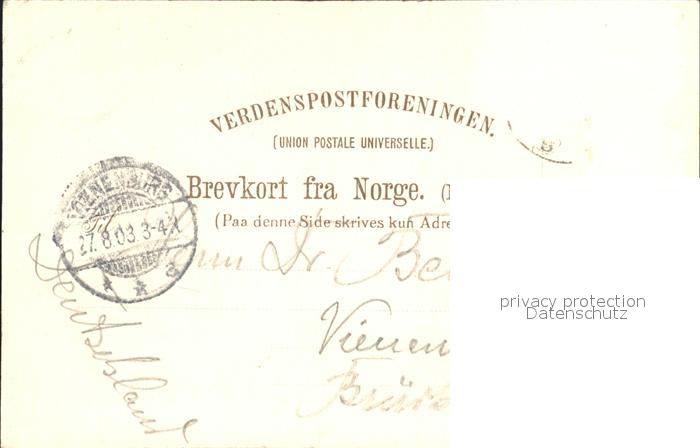 VERDENSPOSTFORENINGEN.
(UNION POSTALE UNIVERSELLE.)
Brevkort fra Norge. (
(Paa denne Side skrives kun Adre
VIENENBURG
Til
27.8.03. 3-4N.
* * a
Dr. Be
Vienen
Brück
Deutschland
privacy protection
Datenschutz